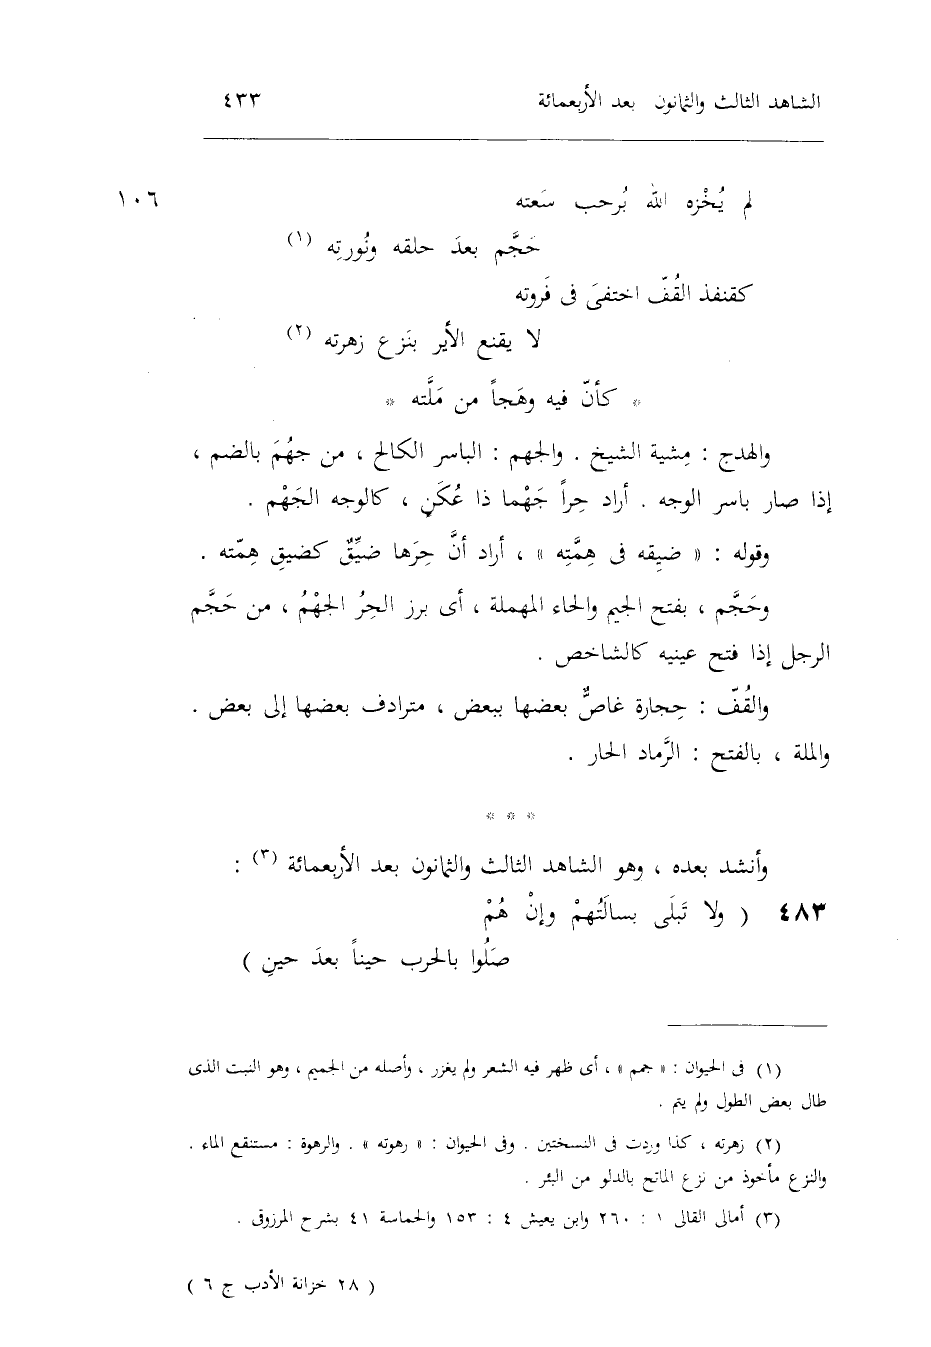 الشاهد الثالث والثمانون بعد الأربعمائة ٤٣٣
لم يُخْزه الله بُرحب سَعته ١٠٦
حَجَّم بعدَ حلقه ونُورتِه (١)
كقنفذ القُفّ اختفىَ فى فَروته
لا يقنع الأير بنَزع زهرته (٢)
* كأنّ فيه وهَجاً من مَلَّته *
والهدج : مِشية الشيخ . والجهم : الباسر الكالح ، من جهُمَ بالضم ،
إذا صار باسر الوجه . أراد حِراً جَهْما ذا عُكَنٍ ، كالوجه الجَهْم .
وقوله : « ضيِقه فى هِمَّتِه » ، أراد أنَّ حِرَها ضيِّقٌ كضيقِ هِمّته .
وحَجَّم ، بفتح الجيم والحاء المهملة ، أى برز الحِرُ الجهْمُ ، من حَجَّم
الرجل إذا فتح عينيه كالشاخص .
والقُفّ : حِجارة غاصٌّ بعضها ببعض ، مترادف بعضها إلى بعض .
والملة ، بالفتح : الرَّماد الحار .
* * *
وأنشد بعده ، وهو الشاهد الثالث والثمانون بعد الأربعمائة (٣) :
٤٨٣ ( ولا تَبلَى بسالَتُهمْ وإنْ هُمْ
صَلُوا بالحرب حيناً بعدَ حينِ )
(١) فى الحيوان : « جمم » ، أى ظهر فيه الشعر ولم يغزر ، وأصله من الجميم ، وهو النبت الذى
طال بعض الطول ولم يتم .
(٢) زهرته ، كذا وردت فى النسختين . وفى الحيوان : « رهوته » . والرهوة : مستنقع الماء .
والنزع مأخوذ من نزع الماتح بالدلو من البئر .
(٣) أمالى القالى ١ : ٢٦٠ وابن يعيش ٤ : ١٥٣ والحماسة ٤١ بشرح المرزوقى .
( ٢٨ خزانة الأدب ج ٦ )